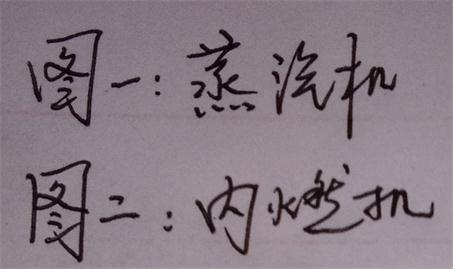 图一：蒸汽机
图二：内燃机